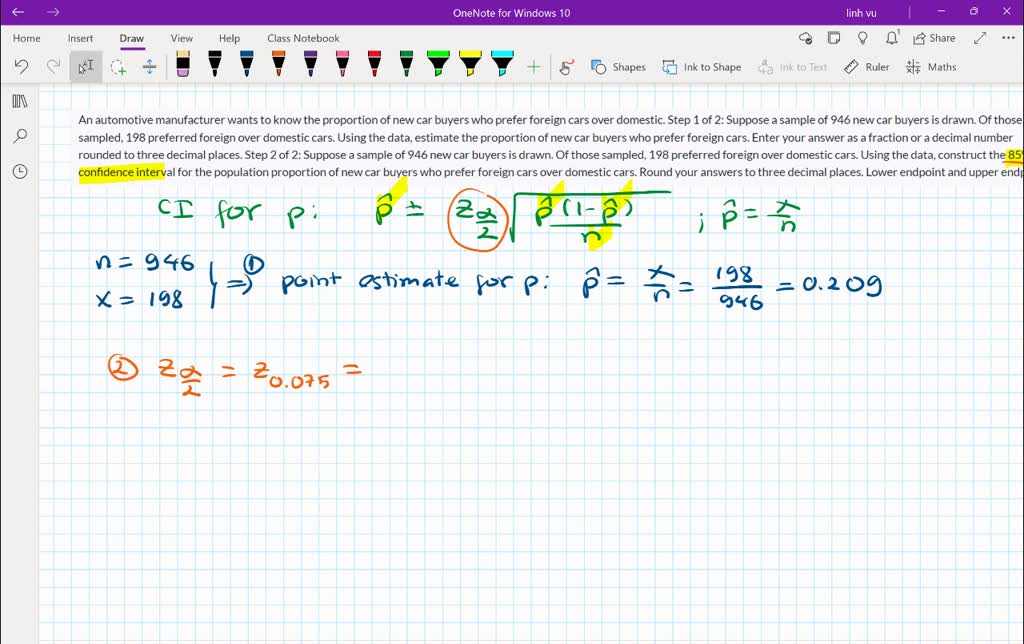 OneNote for Windows 10
linh vu
Home Insert Draw View Help Class Notebook
Share
Shapes Ink to Shape Ink to Text Ruler Maths
An automotive manufacturer wants to know the proportion of new car buyers who prefer foreign cars over domestic. Step 1 of 2: Suppose a sample of 946 new car buyers is drawn. Of those
sampled, 198 preferred foreign over domestic cars. Using the data, estimate the proportion of new car buyers who prefer foreign cars. Enter your answer as a fraction or a decimal number
rounded to three decimal places. Step 2 of 2: Suppose a sample of 946 new car buyers is drawn. Of those sampled, 198 preferred foreign over domestic cars. Using the data, construct the 85%
confidence interval for the population proportion of new car buyers who prefer foreign cars over domestic cars. Round your answers to three decimal places. Lower endpoint and upper endp
CI for p: p̂ ± z_{α/2} √(p̂(1-p̂)/n) ; p̂ = x/n
n = 946
x = 198 } ⇒ ① point estimate for p: p̂ = x/n = 198/946 = 0.209
② z_{α/2} = z_{0.075} =